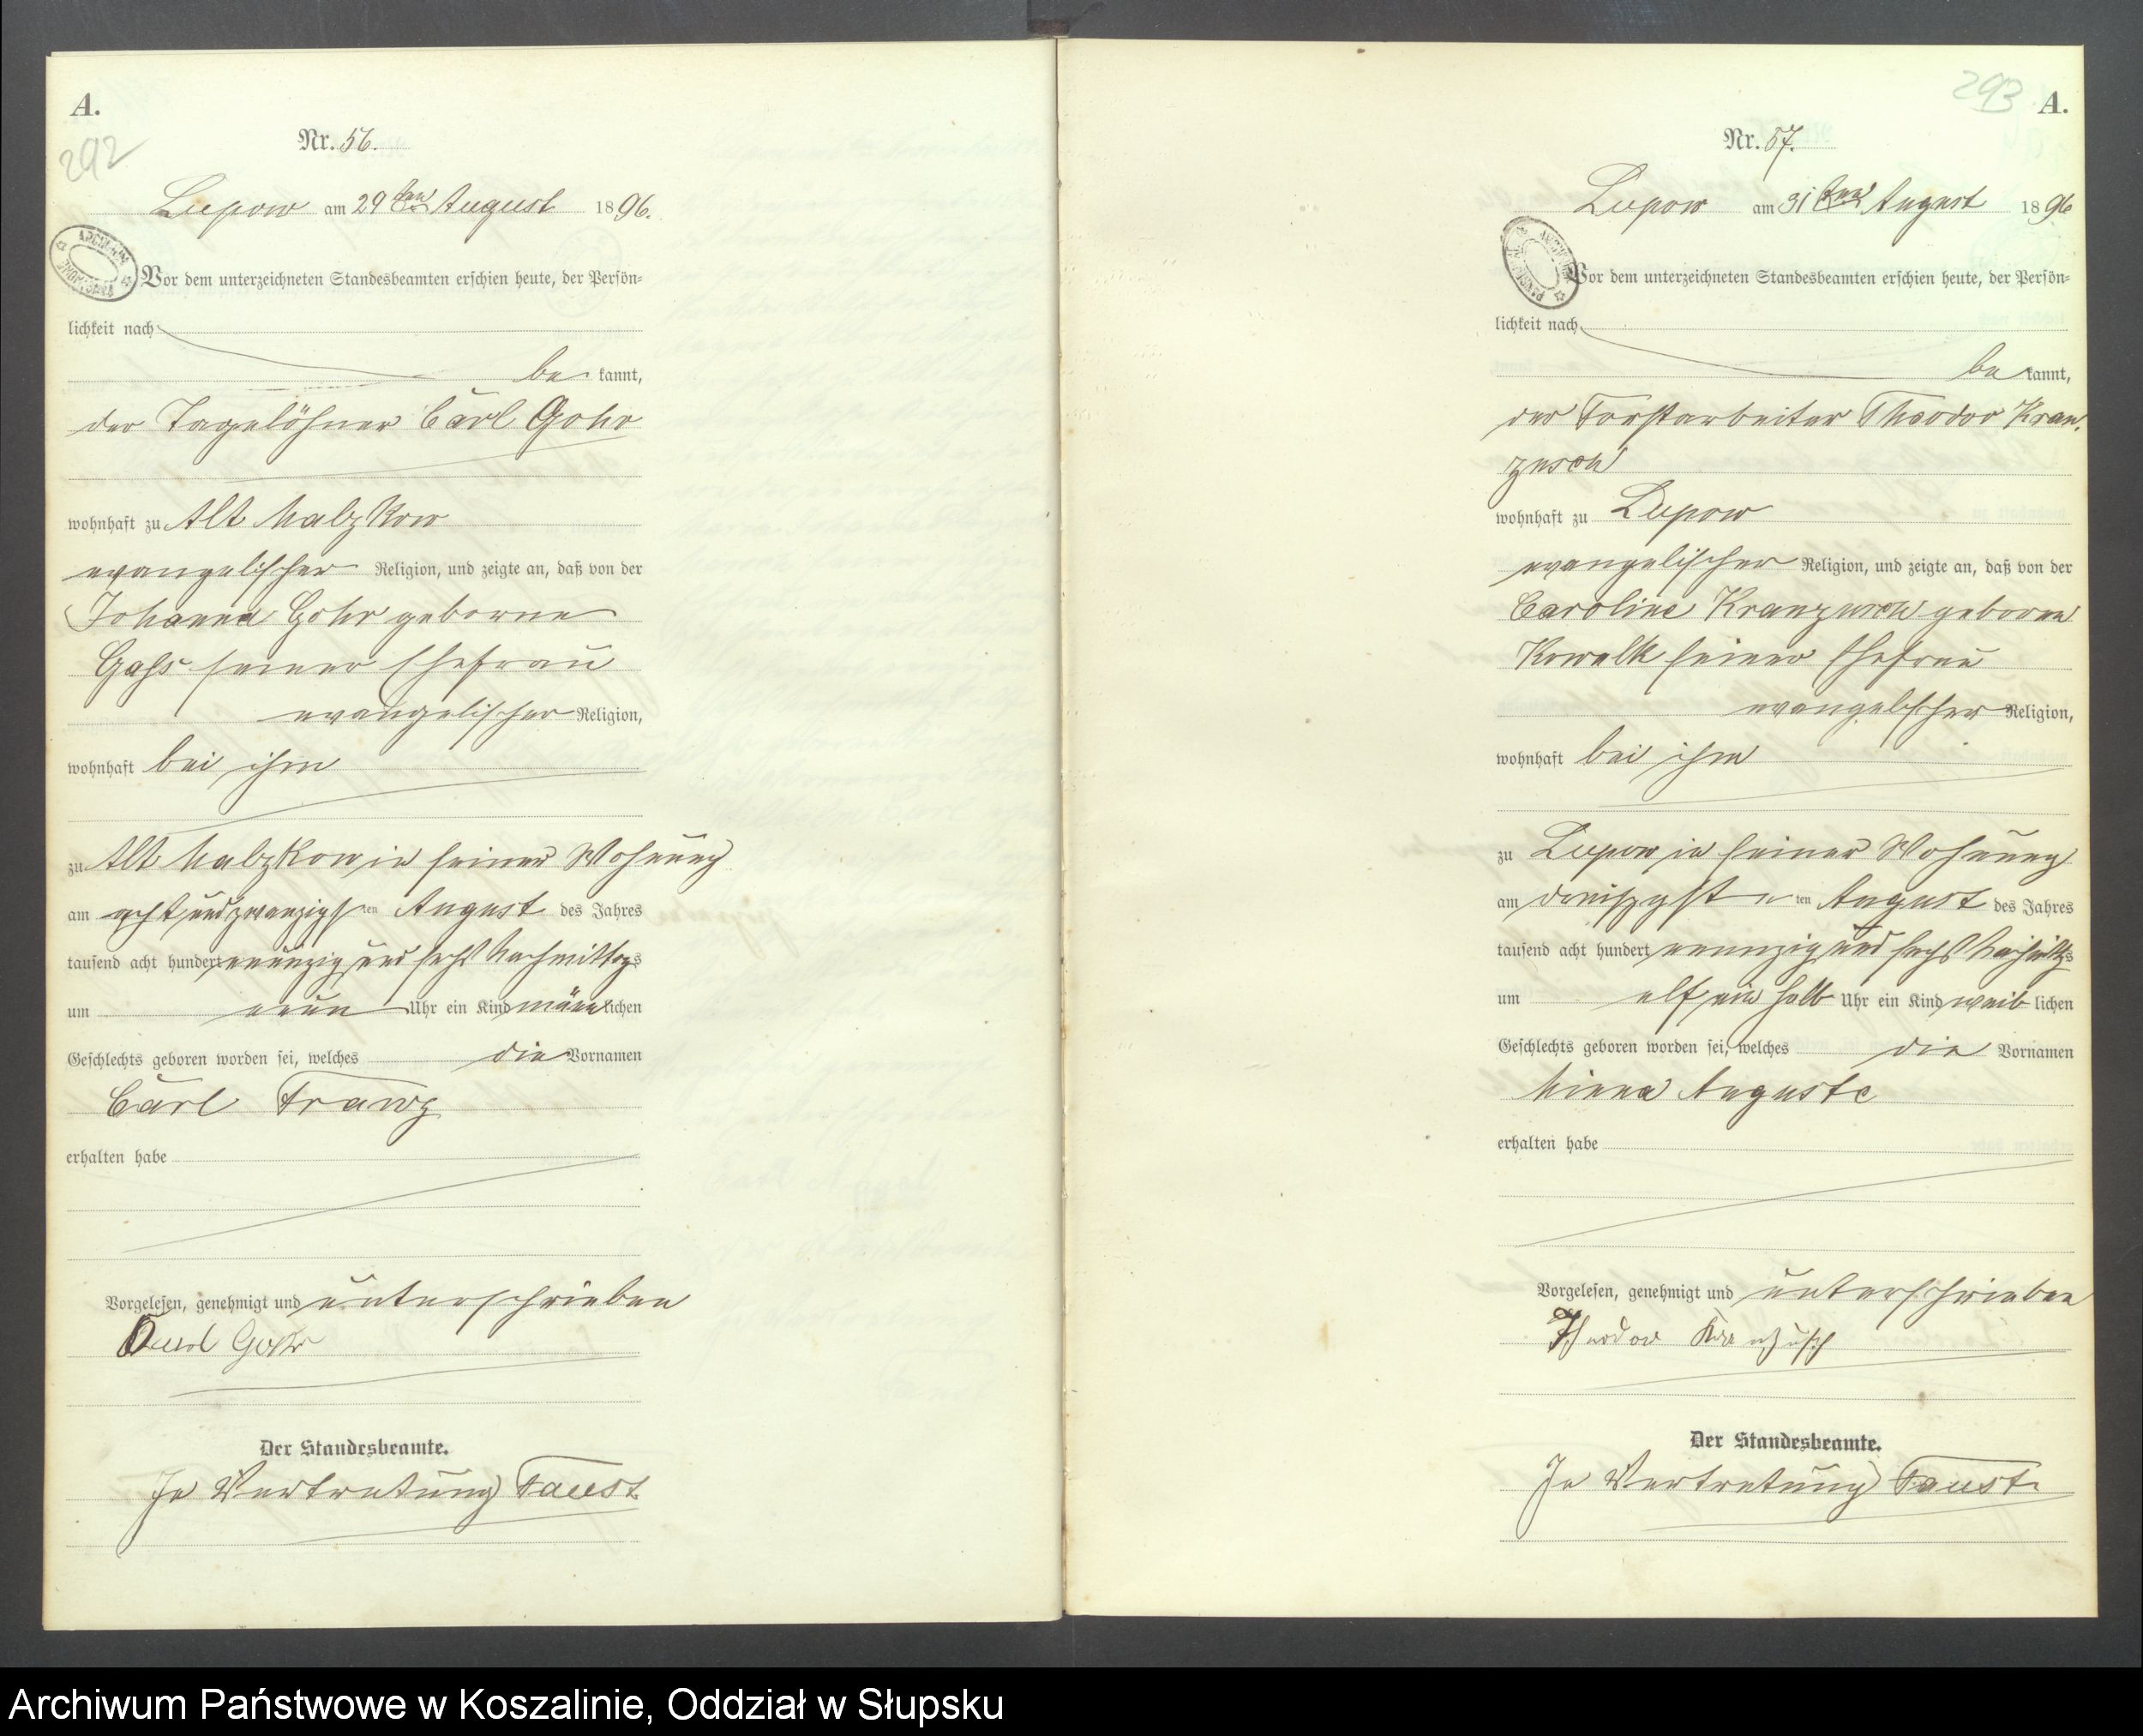 A.
292
Nr. 56.
Lupow am 29 ten August 1896.
Vor dem unterzeichneten Standesbeamten erschien heute, der Persön-
lichkeit nach
be kannt,
der Tagelöhner Carl Gohr
wohnhaft zu Alt Malzkow
evangelischer Religion, und zeigte an, daß von der
Johanna Gohr geborne
Gahs seiner Ehefrau
evangelischer Religion,
wohnhaft bei ihm
zu Alt Malzkow in seiner Wohnung
am acht und zwanzigsten August des Jahres
tausend acht hundert neunzig und sechs Nachmittags
um neun Uhr ein Kind männlichen
Geschlechts geboren worden sei, welches die Vornamen
Carl Franz
erhalten habe
Vorgelesen, genehmigt und unterschrieben
Carl Gohr
Der Standesbeamte.
In Vertretung Faust
293
A.
Nr. 57.
Lupow am 31 ten August 1896
Vor dem unterzeichneten Standesbeamten erschien heute, der Persön-
lichkeit nach
be kannt,
der Forstarbeiter Theodor Kran-
zusch
wohnhaft zu Lupow
evangelischer Religion, und zeigte an, daß von der
Caroline Kranzusch geborne
Kowalk seiner Ehefrau
evangelischer Religion,
wohnhaft bei ihm
zu Lupow in seiner Wohnung
am dreißigsten August des Jahres
tausend acht hundert neunzig und sechs Nachmittags
um elf ein halb Uhr ein Kind weib lichen
Geschlechts geboren worden sei, welches die Vornamen
Minna Auguste
erhalten habe
Vorgelesen, genehmigt und unterschrieben
Theodor Kranzusch
Der Standesbeamte.
In Vertretung Faust
Archiwum Państwowe w Koszalinie, Oddział w Słupsku